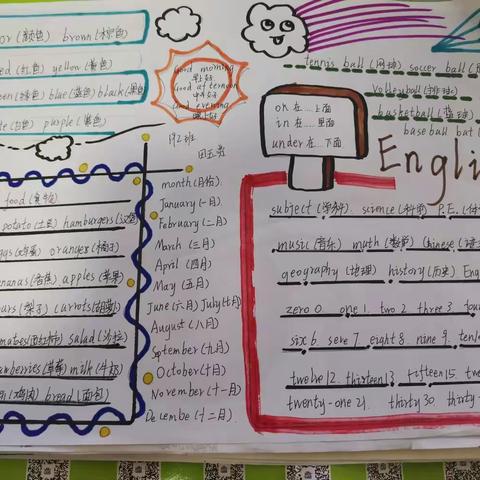 or (颜色) brown (棕色)
ed (红色) yellow (黄色)
een (绿色) blue (蓝色) black (黑色)
te (白色) purple (紫色)
Good morning
早上好
Good afternoon
下午好
Good evening
晚上好
tennis ball (网球) soccer ball (
Volleyball (排球)
basketball (篮球)
baseball bat (
on 在……上面
in 在……里面
under 在…下面
Engli
192班
food (食物)
potato (土豆) hamburgers (汉堡)
gas oranges (橘子)
ananas (香蕉) apples (苹果)
ears (梨子) carrots (胡萝卜)
matoes (西红柿) salad (沙拉)
awberries (草莓) milk (牛奶)
en (鸡肉) bread (面包)
month (月份)
January (一月)
February (二月)
March (三月)
April (四月)
May (五月)
June (六月) July (七月)
August (八月)
September (九月)
October (十月)
November (十一月)
Decembe (十二月)
subject (学科) science (科学) P.E. (体
music (音乐) math (数学) Chinese (语文
geography (地理) history (历史) Eng
zero 0 one 1. two 2 three 3. fou
six 6. seve 7. eight 8. nine 9. ten
twelve 12. thirteen 13 fifteen 15. twe
twenty-one 21. thirty 30 thirty-